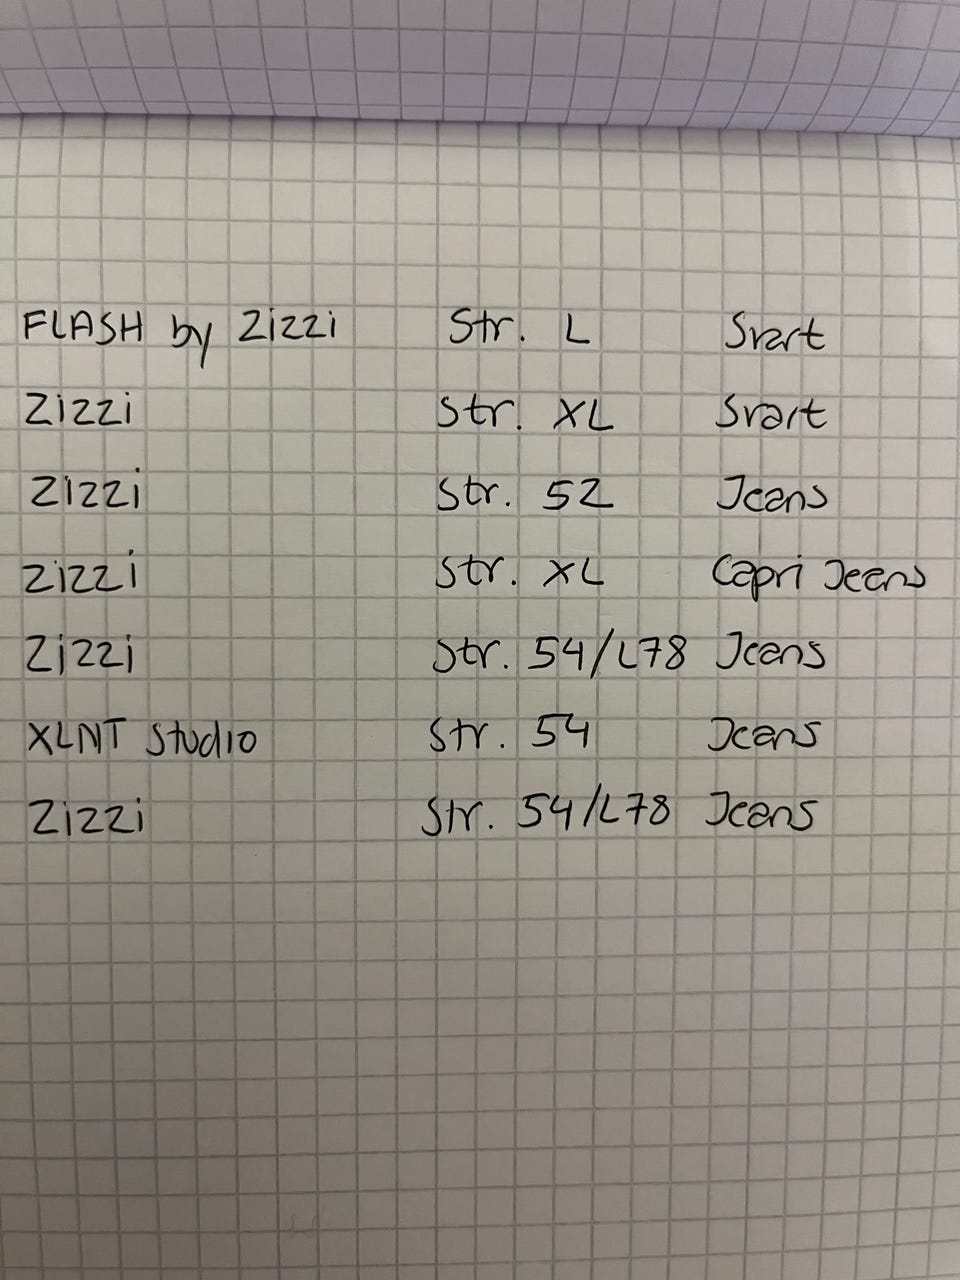 FLASH by Zizzi Str. L Svart
Zizzi Str. XL Svart
Zizzi Str. 52 Jeans
Zizzi Str. XL Capri Jeans
Zizzi Str. 54/L78 Jeans
XLNT Studio Str. 54 Jeans
Zizzi Str. 54/L78 Jeans